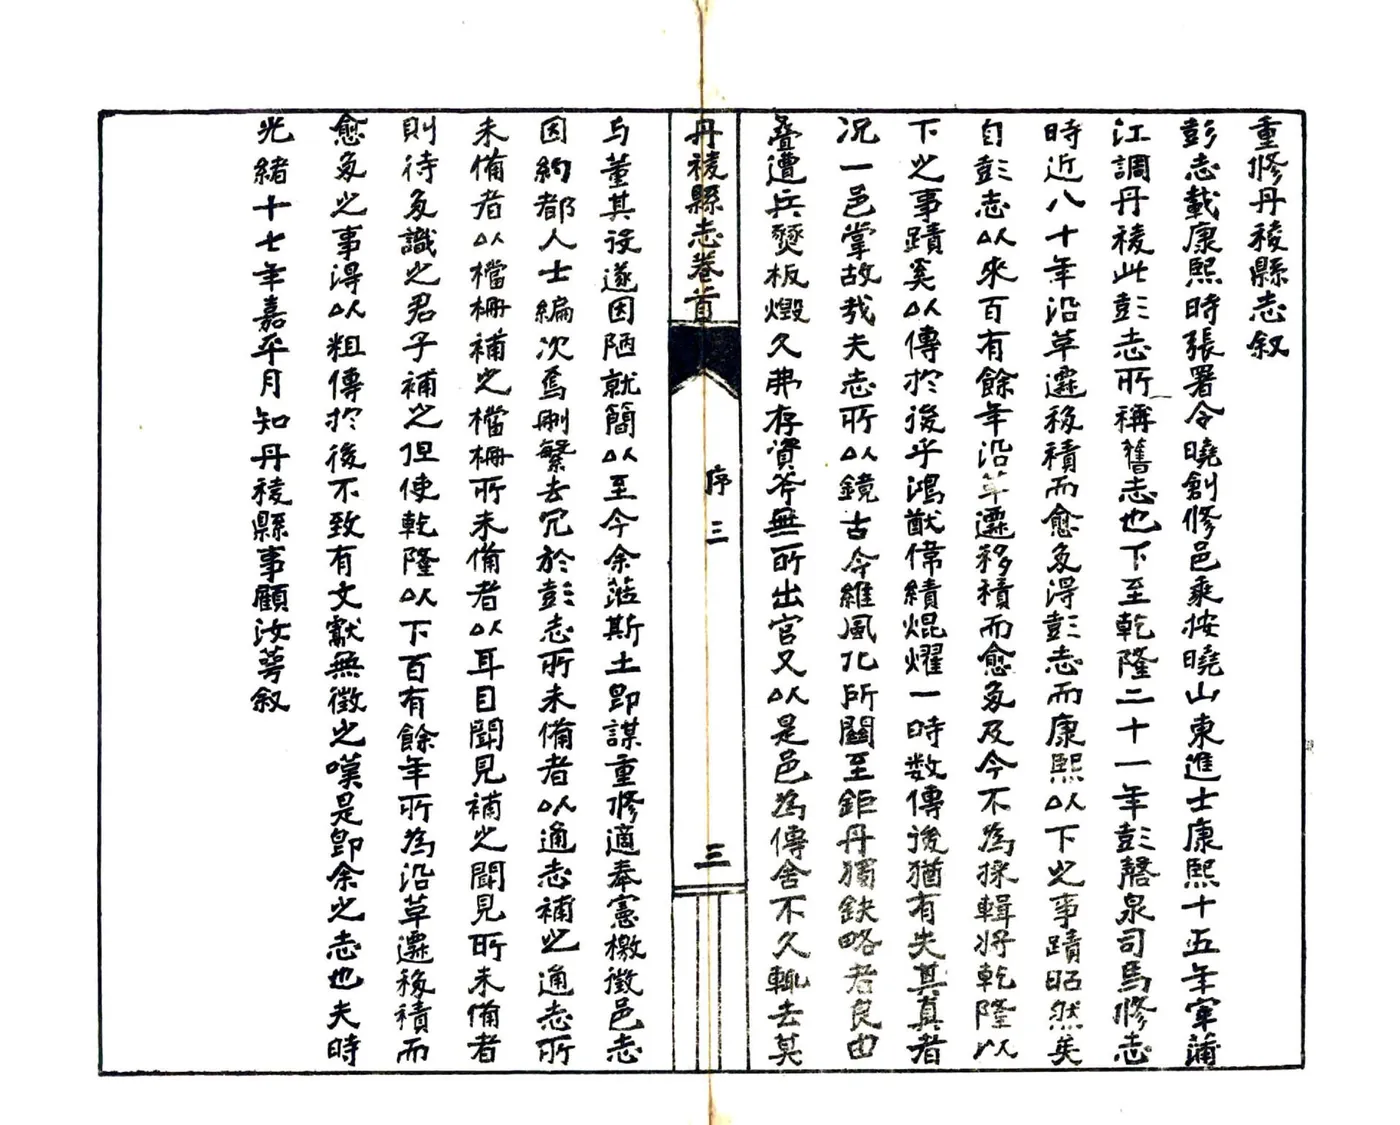 重修丹稜縣志叙
彭志載康熙時張署令曉創修邑乘按曉山東進士康熙十五年宰蒲
江調丹稜此彭志所稱舊志也下至乾隆二十一年彭磬泉司馬修志
時近八十年沿革遷移積而愈多得彭志而康熙以下之事蹟昭然矣
自彭志以來百有餘年沿革遷移積而愈多及今不為採輯將乾隆以
下之事蹟奚以傳於後乎鴻猷偉績焜燿一時数傳後猶有失其真者
况一邑掌故哉夫志所以鏡古今維風化所關至鉅丹獨缺略者良由
疊遭兵燹板燬久弗存資斧無所出官又以是邑為傳舍不久輒去莫
丹稜縣志卷首
序三
三
与董其役遂因陋就簡以至今余蒞斯土即謀重修適奉憲檄徵邑志
因約都人士編次焉刪繁去冗於彭志所未備者以通志補之通志所
未備者以檔冊補之檔冊所未備者以耳目聞見補之聞見所未備者
則待多識之君子補之但使乾隆以下百有餘年所為沿革遷移積而
愈多之事得以粗傳於後不致有文獻無徵之嘆是即余之志也夫時
光緒十七年嘉平月知丹稜縣事顧汝萼叙